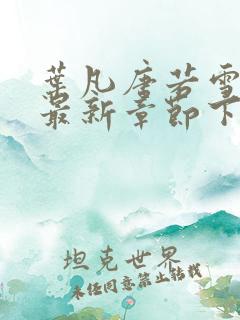 叶凡唐若雪
最新章节下
坦克世界
未经同意禁止转载